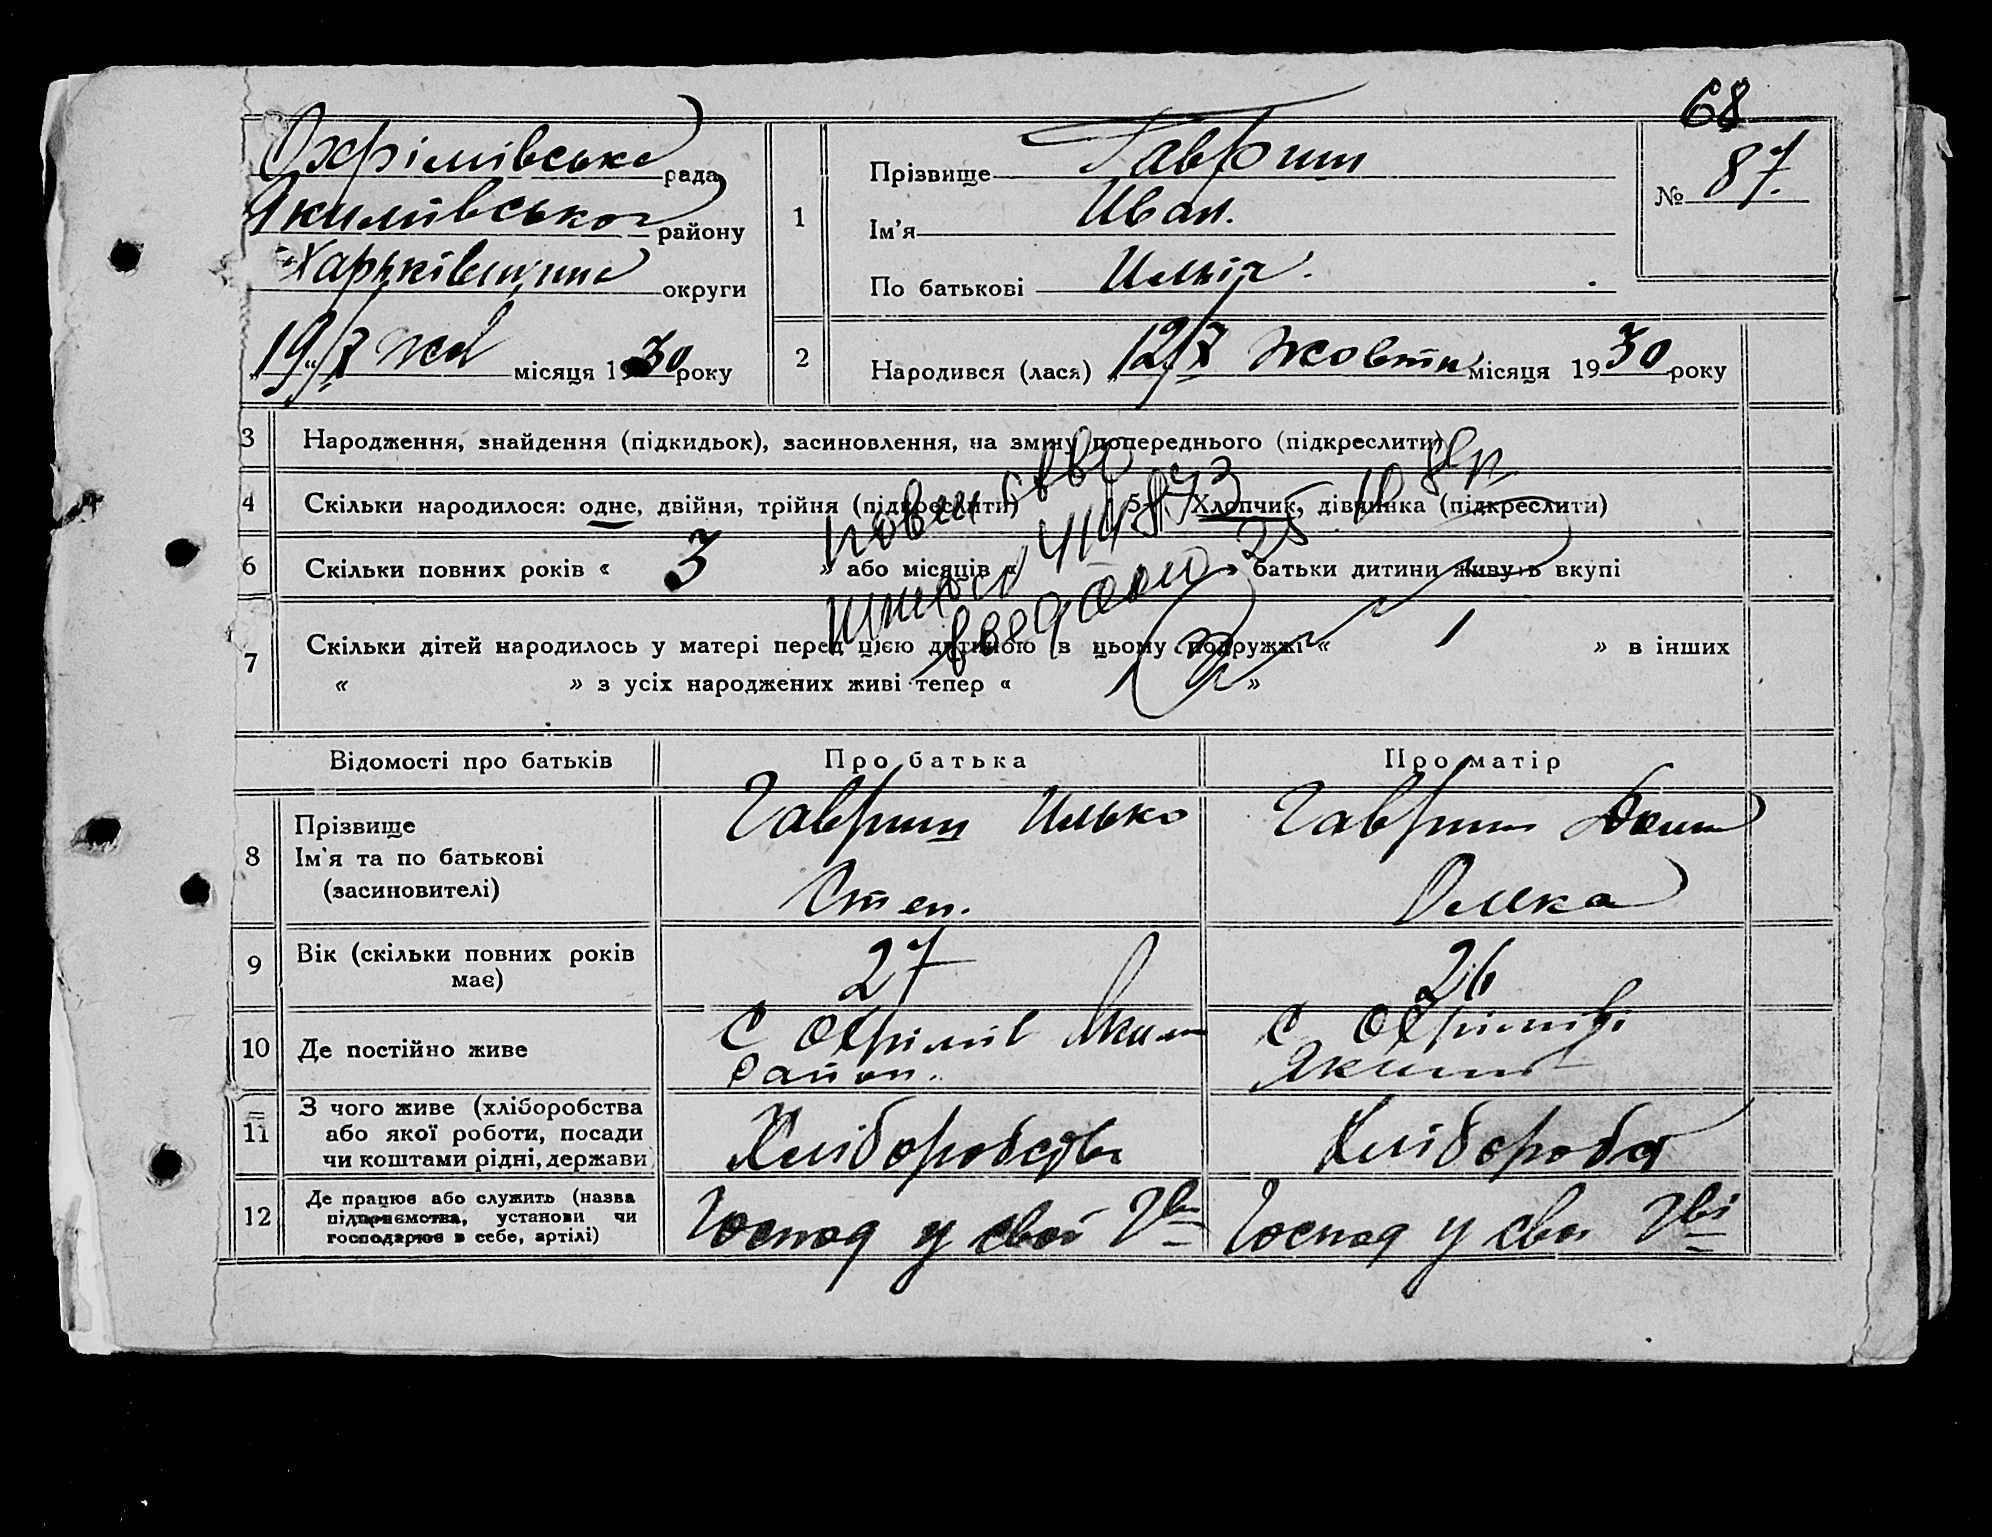 68
Охрімівська рада
Якимівського району
Харьківщини округи
„19/X жов місяця 1930 року
1
Прізвище Гавриш
Ім'я Иван.
По батькові Ильіч.
№ 87.
2
Народився (лася) „12/X жовтн місяця 1930 року
3 Народження, знайдення (підкидьок), засиновлення, на зміну попереднього (підкреслити)
4 Скільки народилося: одне, двійня, трійня (підкреслити) 5 Хлопчик, дівчинка (підкреслити)
6 Скільки повних років « 3 » або місяців « » батьки дитини живуть вкупі
7 Скільки дітей народилось у матері перед цією дитиною в цьому подружжі « 1 » в інших
« » з усіх народжених живі тепер « »
Відомості про батьків Про батька Про матір
8 Прізвище
Ім'я та по батькові
(засиновителі)
Гавриш Илько
Степ.
Гавриш
9 Вік (скільки повних років
має)
27
26
10 Де постійно живе
с Охрімів Яким
район.
с Охрімівці
Яким
11 З чого живе (хліборобства
або якої роботи, посади
чи коштами рідні, держави
Хліборобств
Хлібороба
12 Де працює або служить (назва
підприємства, установи чи
господарює в себе, артілі)
Господ у свой Гві
Господ у сво Гві